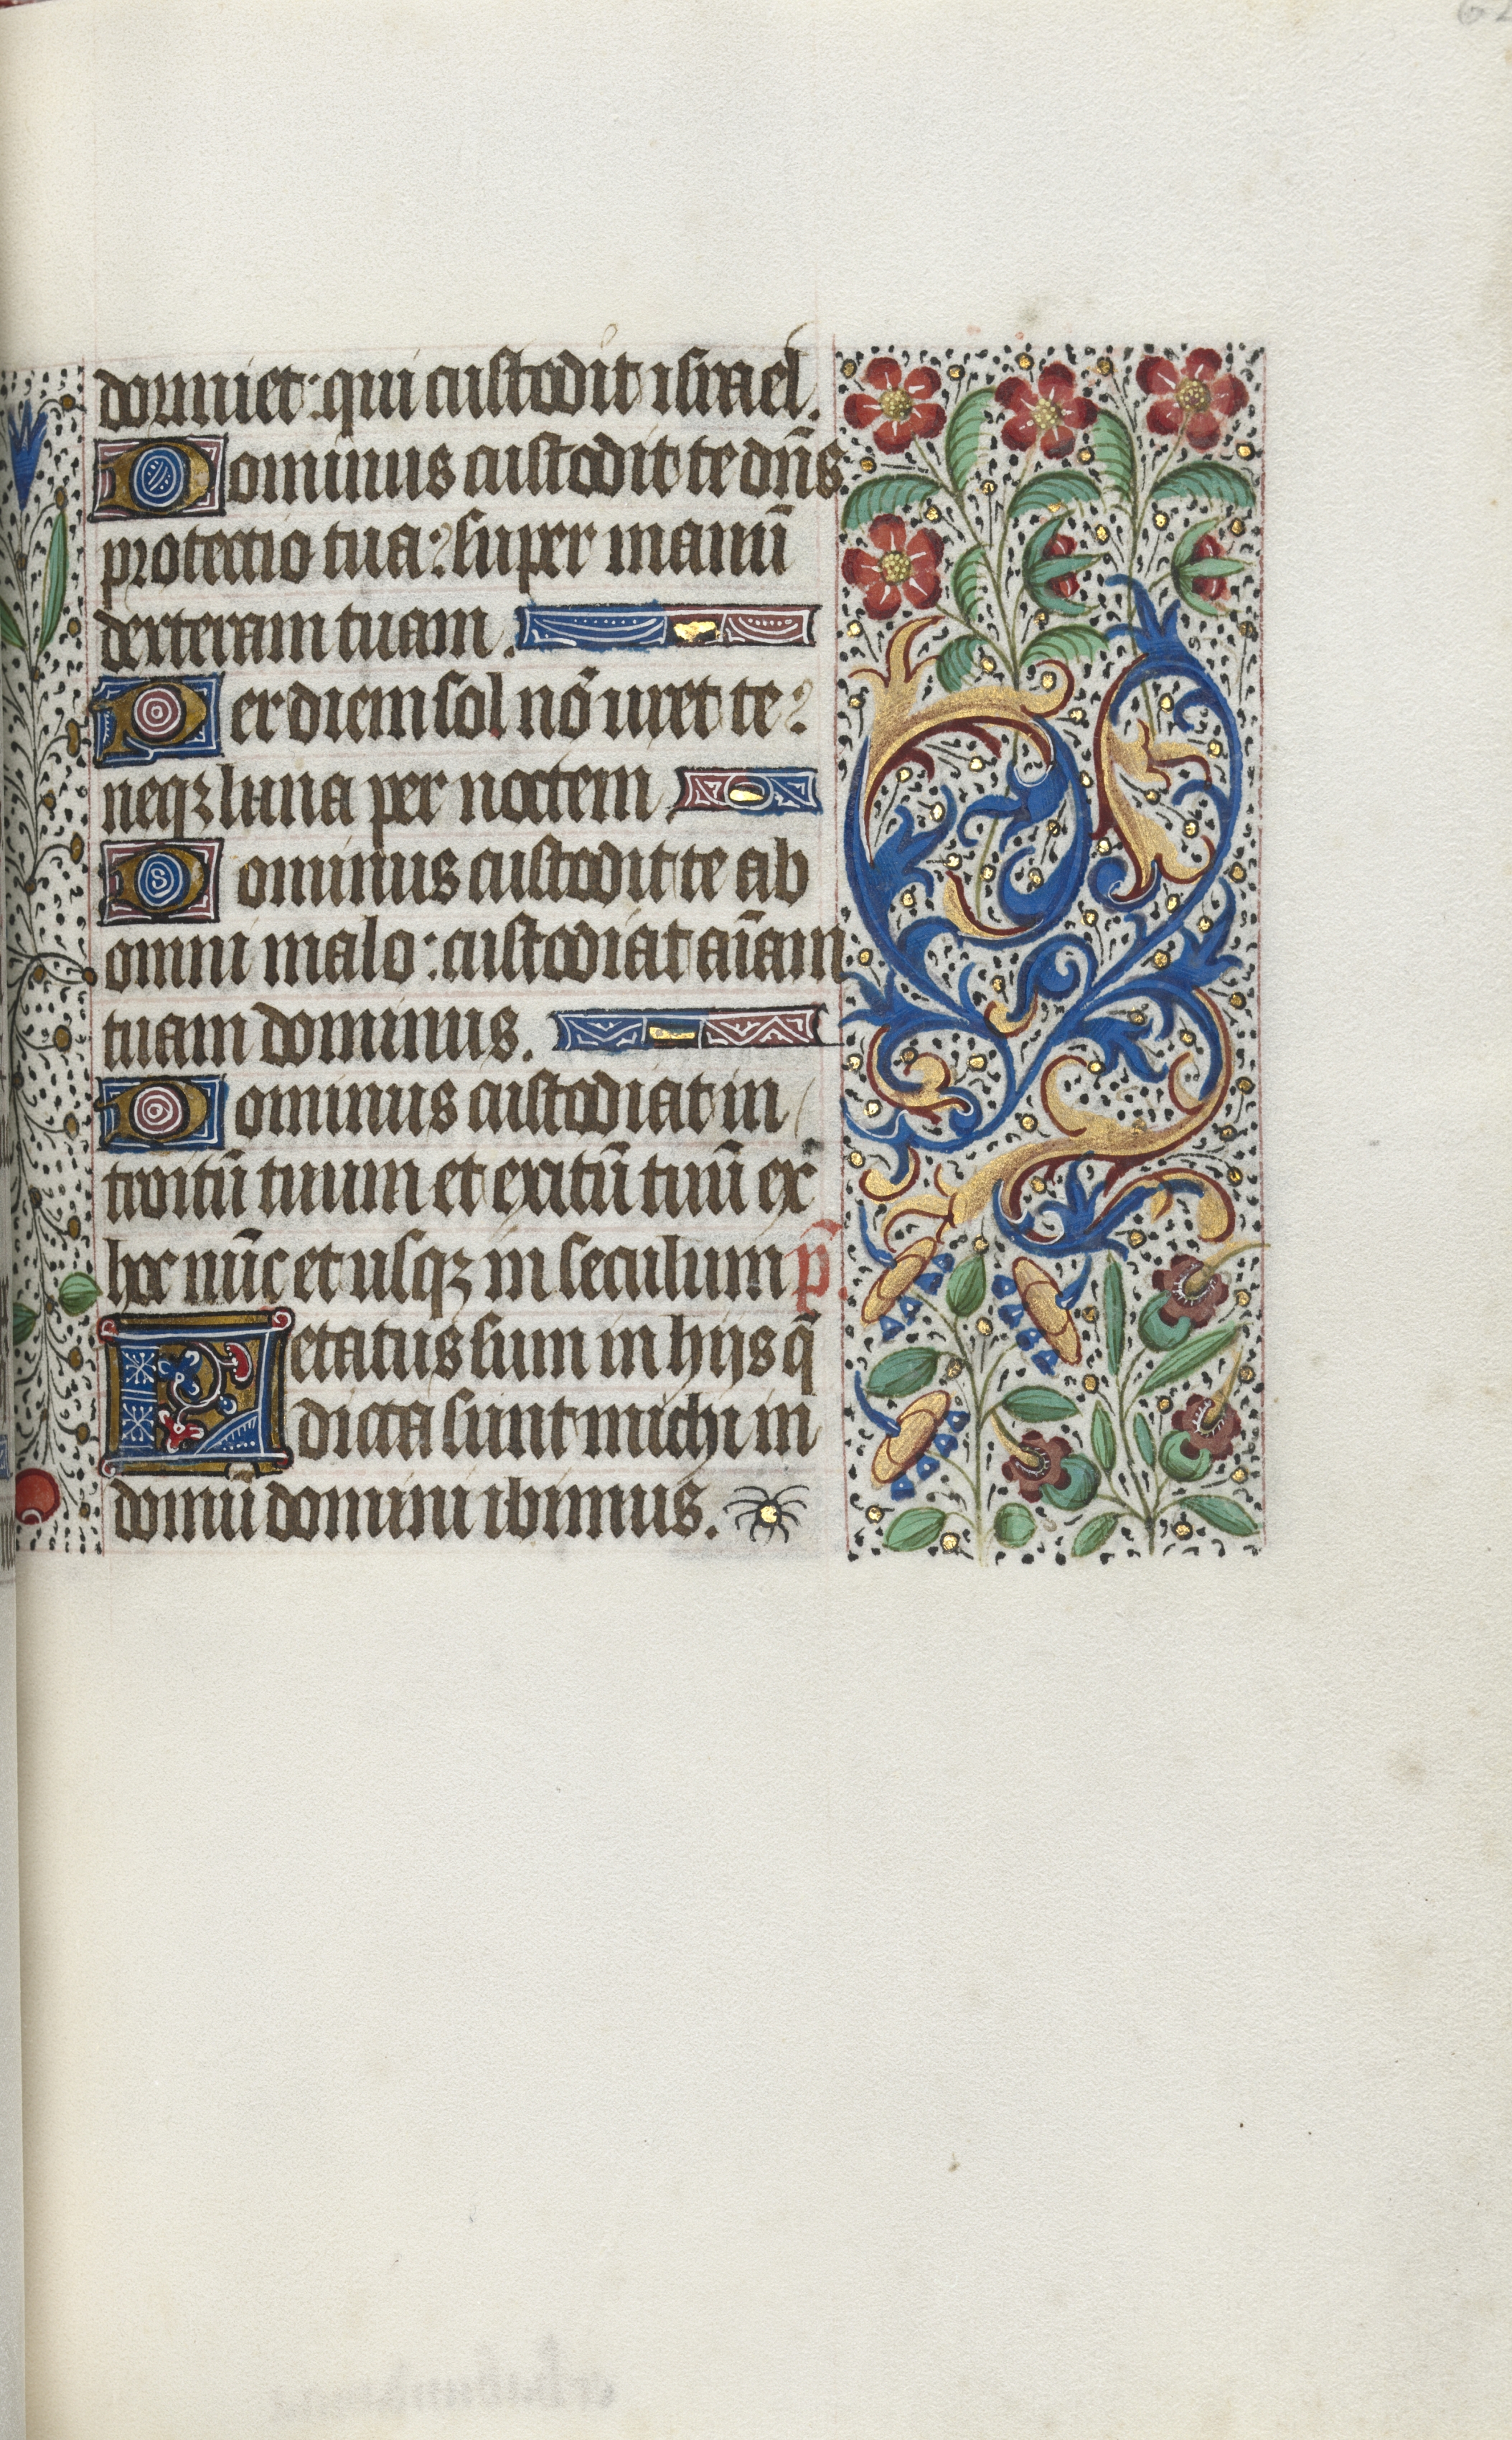 dormiet: qui custodit israel.
Dominus custodit te dn̄s
protectio tua: super manū
dexteram tuam.
Per diem sol nō uret te:
neqꝫ luna per noctem.
Dominus custodit te ab
omni malo: custodiat aīam
tuam dominus.
Dominus custodiat in
troitū tuum et exitū tuū ex
hoc nūc et usqꝫ in seculum p̄.
Letatus sum in hijs q̄
dicta sunt michi in
domū domini ibimus.